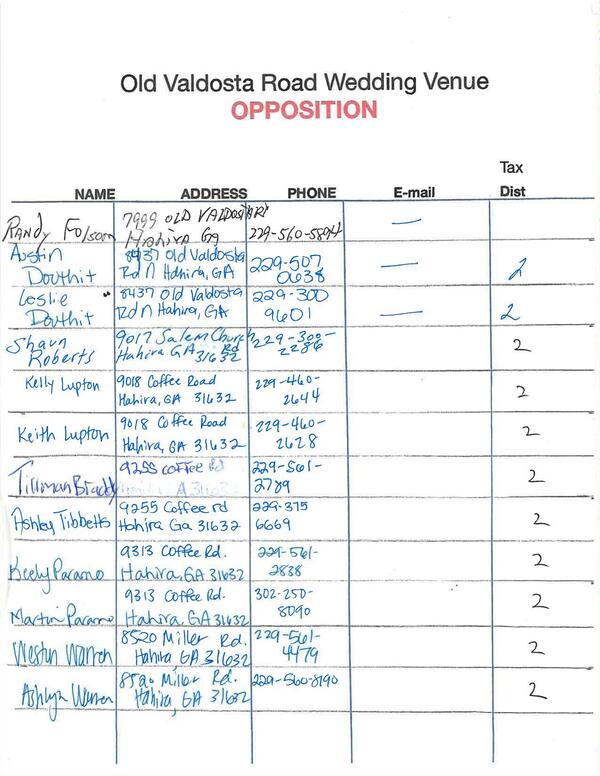 Old Valdosta Road Wedding Venue
OPPOSITION
Tax
NAME ADDRESS PHONE E-mail Dist
Randy Folsom 7999 OLD VALDOSTA RD
Hahira Ga 229-560-5844 —
Austin 8437 Old Valdosta 229-507
Douthit Rd N Hahira, GA 0638 — 2
Leslie 8437 Old Valdosta 229-300
Douthit Rd N Hahira, GA 9601 — 2
Shaun 9017 Salem Church 229-300-
Roberts Hahira GA 31632 Rd 2286 2
Kelly Lupton 9018 Coffee Road 229-460-
Hahira, GA 31632 2644 2
Keith Lupton 9018 Coffee Road 229-460-
Hahira, GA 31632 2628 2
Tillman Braddy 9255 coffee Rd 229-561-
A 31632 2789 2
Ashley Tibbetts 9255 Coffee rd 229-375
Hahira Ga 31632 6669 2
Keely Paramo 9313 Coffee Rd. 229-561-
Hahira, GA 31632 2838 2
Martin Paramo 9313 Coffee Rd. 302-250-
Hahira, GA 31632 8090 2
Westyn Warren 8520 Miller Rd. 229-561-
Hahira GA 31632 4479 2
Ashlyn Warren 8520 Miller Rd. 229-560-8190
Hahira GA 31632 2